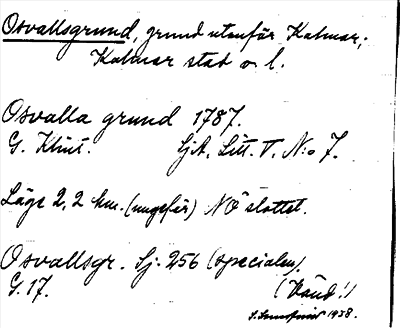 Osvallsgrund, grund utanför Kalmar,
Kalmar stad o. l.
Osvalla grund 1787.
G. Klint. SjA. Litt. T. N:o 7.
Läge 2,2 km. (ungefär) NÖ slottet.
Osvallsgr. Sj. 256 (specialen).
G. 17. (Känd!)
1938.